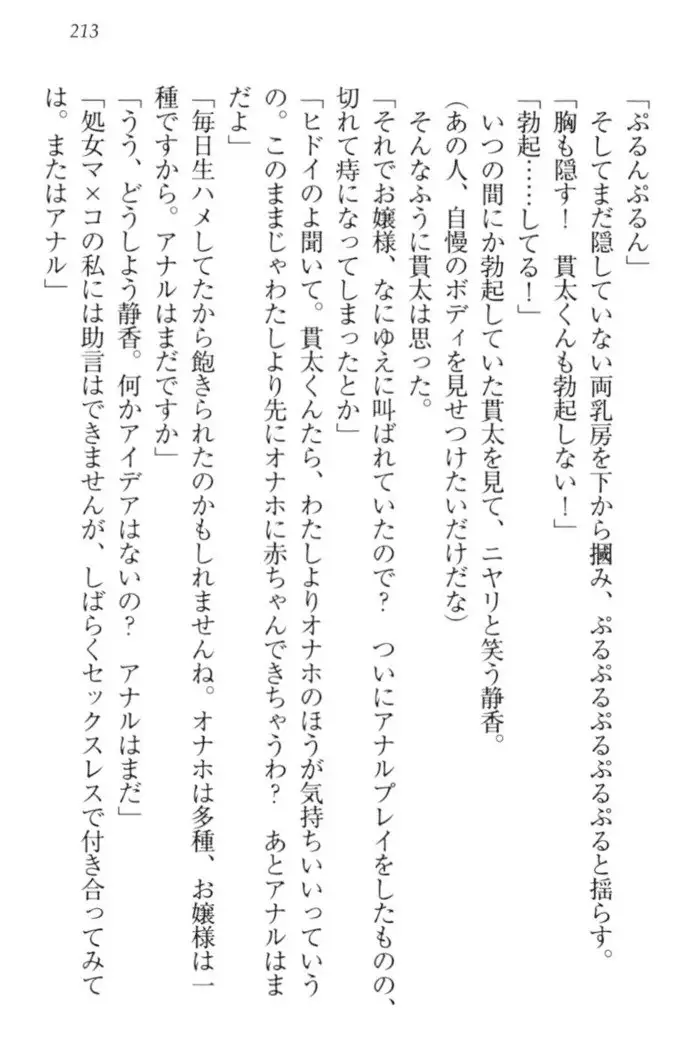 213
「ぷるんぷるん」
そしてまだ隠していない両乳房を下から摑み、ぷるぷるぷるぷると揺らす。
「胸も隠す！　貫太くんも勃起しない！」
「勃起……してる！」
いつの間にか勃起していた貫太を見て、ニヤリと笑う静香。
(あの人、自慢のボディを見せつけたいだけだな)
そんなふうに貫太は思った。
「それでお嬢様、なにゆえに叫ばれていたので？　ついにアナルプレイをしたものの、
切れて痔になってしまったとか」
「ヒドイのよ聞いて。貫太くんたら、わたしよりオナホのほうが気持ちいいっていう
の。このままじゃわたしより先にオナホに赤ちゃんできちゃうわ？　あとアナルはま
だよ」
「毎日生ハメしてたから飽きられたのかもしれませんね。オナホは多種、お嬢様は一
種ですから。アナルはまだですか」
「うう、どうしよう静香。何かアイデアはないの？　アナルはまだ」
「処女マ×コの私には助言はできませんが、しばらくセックスレスで付き合ってみて
は。またはアナル」